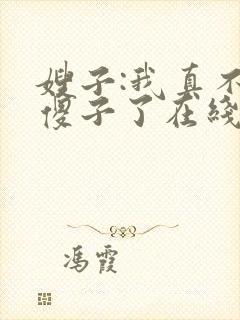 嫂子:我真不
傻子了在线
冯霞